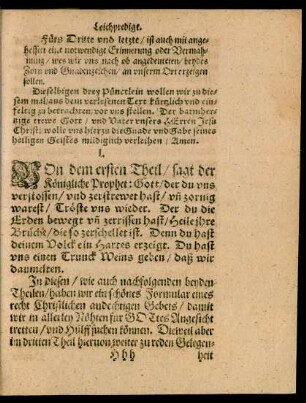 Leichpredigt.
Fürs Dritte vnd letzte/ ist auch mit ange-
hefftet eine notwendige Erinnerung oder Vermah-
nung/ wes wir vns nach ob angedeuteten/ beydes
Zorn vnd Gnadenzeichen/ an vnserm Ort erzeigen
sollen.
Dieselbigen drey Pünctlein wollen wir zu die-
sem mal/ aus dem verlesenen Text kürtzlich vnd ein-
feltig zu betrachten/ vor vns stellen. Der barmher-
tzige trewe Gott/ vnd Vater vnsers HErren Jesu
Christi/ wolle vns hierzu die Gnade vnd Gabe seines
heiligen Geistes mildiglich verleihen/ Amen.
I.
VOn dem ersten Theil/ saget der
Königliche Prophet: Gott/ der du vns
verstossen/ vnd zerstrewet hast/ vñ zornig
warest/ Tröste vns wieder. Der du die
Erden beweget vñ zerrissen hast/ Heile jhre
Brüche/ die so zerschellet ist. Denn du hast
deinem Volck ein Hartes erzeigt. Du hast
vns einen Trunck Weins geben/ daß wir
daumelten.
In diesen/ wie auch nachfolgenden beyden
Theilen/ haben wir ein schönes Formular eines
recht Christlichen andechtigen Gebets/ damit
wir in allerley Nöhten für GOttes Angesicht
tretten/ vnd Hülff suchen können. Dieweil aber
im dritten Theil hieruon weiter zu reden Gelegen-
Hhh
heit